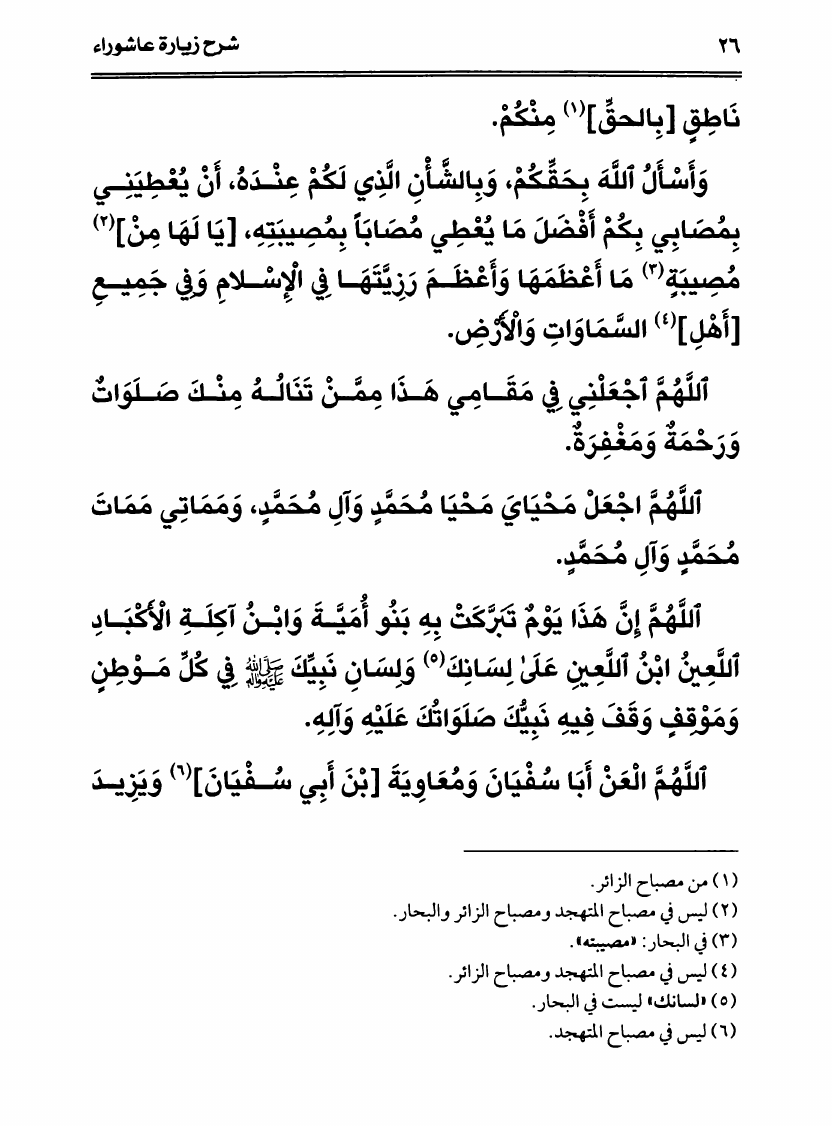 ٢٦ شرح زيارة عاشوراء
نَاطِقٍ [بِالحقِّ](١) مِنْكُمْ.
وَأَسْأَلُ ٱللَّهَ بِحَقِّكُمْ، وَبِالشَّأْنِ الَّذِي لَكُمْ عِنْـدَهُ، أَنْ يُعْطِيَنِـي
بِمُصَابِي بِكُمْ أَفْضَلَ مَا يُعْطِي مُصَابَاً بِمُصِيبَتِهِ، [يَا لَهَا مِنْ](٢)
مُصِيبَةٍ(٣) مَا أَعْظَمَهَا وَأَعْظَـمَ رَزِيَّتَهَـا فِي الْإِسْـلامِ وَفِي جَمِيـعِ
[أَهْلِ](٤) السَّمَاوَاتِ وَالْأَرْضِ.
ٱللَّهُمَّ ٱجْعَلْنِي فِي مَقَـامِي هَـذَا مِمَّـنْ تَنَالُـهُ مِنْـكَ صَـلَوَاتٌ
وَرَحْمَةٌ وَمَغْفِرَةٌ.
ٱللَّهُمَّ اجْعَلْ مَحْيَايَ مَحْيَا مُحَمَّدٍ وَآلِ مُحَمَّدٍ، وَمَمَاتِي مَمَاتَ
مُحَمَّدٍ وَآلِ مُحَمَّدٍ.
ٱللَّهُمَّ إِنَّ هَذَا يَوْمٌ تَبَرَّكَتْ بِهِ بَنُو أُمَيَّـةَ وَابْـنُ آكِلَـةِ الْأَكْبَـادِ
ٱللَّعِينُ ابْنُ ٱللَّعِينِ عَلَىٰ لِسَانِكَ(٥) وَلِسَانِ نَبِيِّكَ ﷺ فِي كُلِّ مَـوْطِنٍ
وَمَوْقِفٍ وَقَفَ فِيهِ نَبِيُّكَ صَلَوَاتُكَ عَلَيْهِ وَآلِهِ.
ٱللَّهُمَّ الْعَنْ أَبَا سُفْيَانَ وَمُعَاوِيَةَ [بْنَ أَبِي سُـفْيَانَ](٦) وَيَزِيـدَ
(١) من مصباح الزائر.
(٢) ليس في مصباح المتهجد ومصباح الزائر والبحار.
(٣) في البحار: «مصيبته».
(٤) ليس في مصباح المتهجد ومصباح الزائر.
(٥) «لسانك» ليست في البحار.
(٦) ليس في مصباح المتهجد.